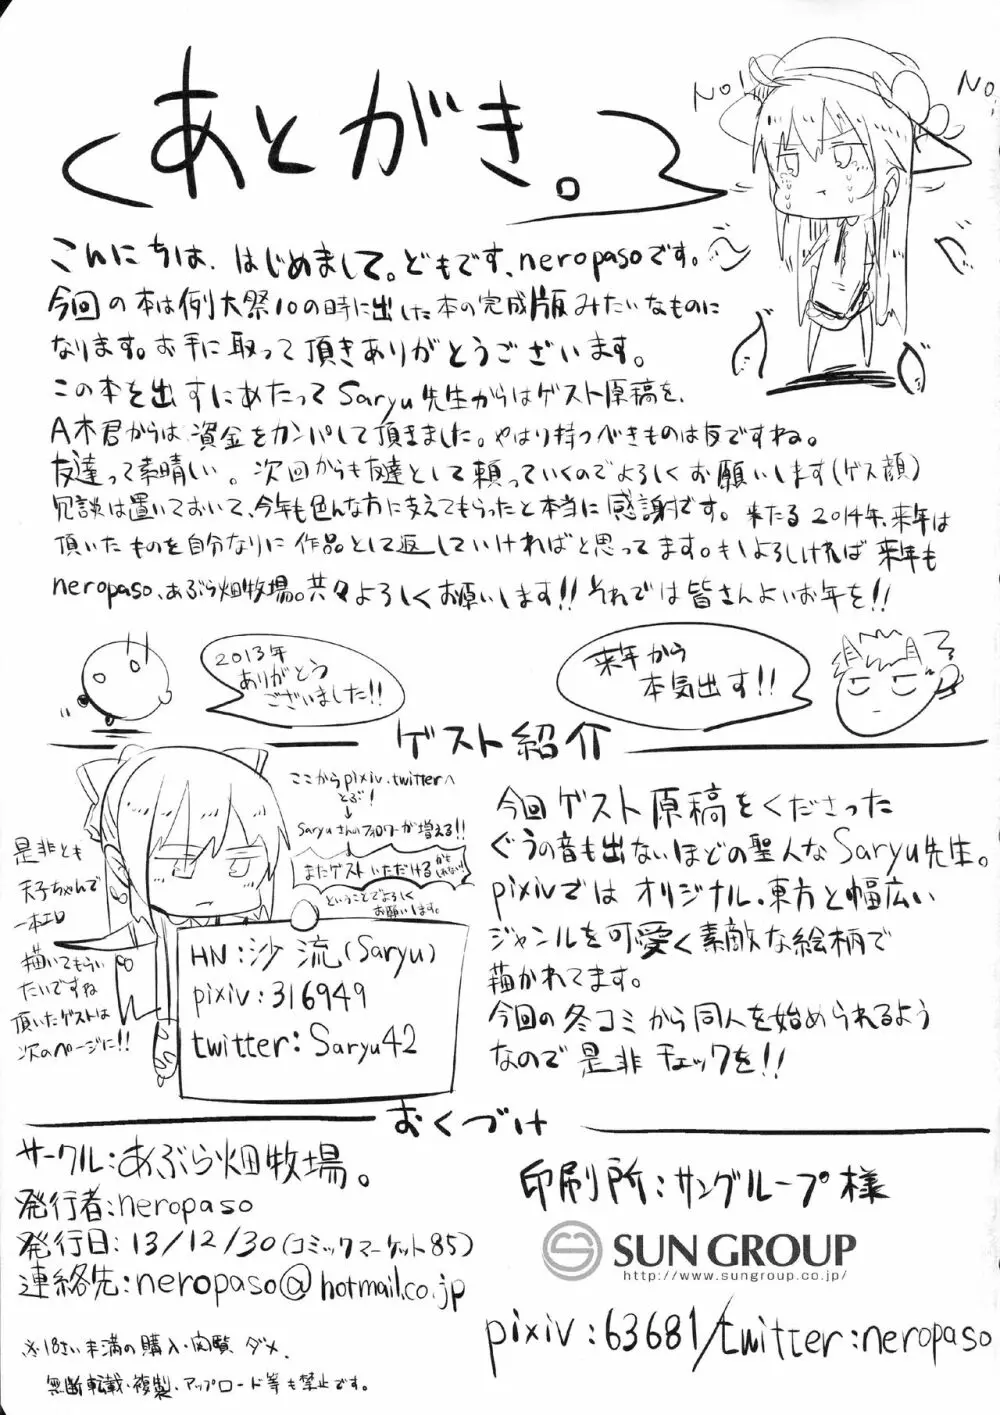 あとがき。
No!
No!
こんにちは、はじめまして。どもです、neropasoです。
今回の本は例大祭10の時に出した本の完成版みたいなものに
なります。お手に取って頂きありがとうございます。
この本を出すにあたってSaryu先生からはゲスト原稿を、
A木君からは資金をカンパして頂きました。やはり持つべきものは友ですね。
友達って素晴しい。次回からも友達として頼っていくのでよろしくお願いします(ゲス顔)
冗談は置いておいて、今年も色んな方に支えてもらったと本当に感謝です。来たる2014年、来年は
頂いたものを自分なりに作品として返していければと思ってます。もしよろしければ来年も
neropaso、あぶら畑牧場。共々よろしくお願いします!!それでは皆さんよいお年を!!
2013年
ありがとう
ございました!!
来年から
本気出す!!
ゲスト紹介
ここからpixiv、twitterへ
とぶ!
Saryuさんのフォロワーが増える!!
またゲストいただけるかもしれない!!
ということでよろしく
お願いします。
是非とも
天子ちゃんで
一本エロ
描いてもらい
たいですね
頂いたゲストは
次のページに!!
HN:沙流(Saryu)
pixiv:316949
twitter:Saryu42
今回ゲスト原稿をくださった
ぐうの音も出ないほどの聖人なSaryu先生。
pixivではオリジナル、東方と幅広い
ジャンルを可愛く素敵な絵柄で
描かれてます。
今回の冬コミから同人を始められるよう
なので是非チェックを!!
おくづけ
サークル:あぶら畑牧場。
発行者:neropaso
発行日:13/12/30(コミックマーケット85)
連絡先:neropaso@hotmail.co.jp
※18さい未満の購入・閲覧、ダメ、
無断転載・複製・アップロード等も禁止です。
印刷所:サングループ様
SUN GROUP
http://www.sungroup.co.jp/
pixiv:63681/twitter:neropaso